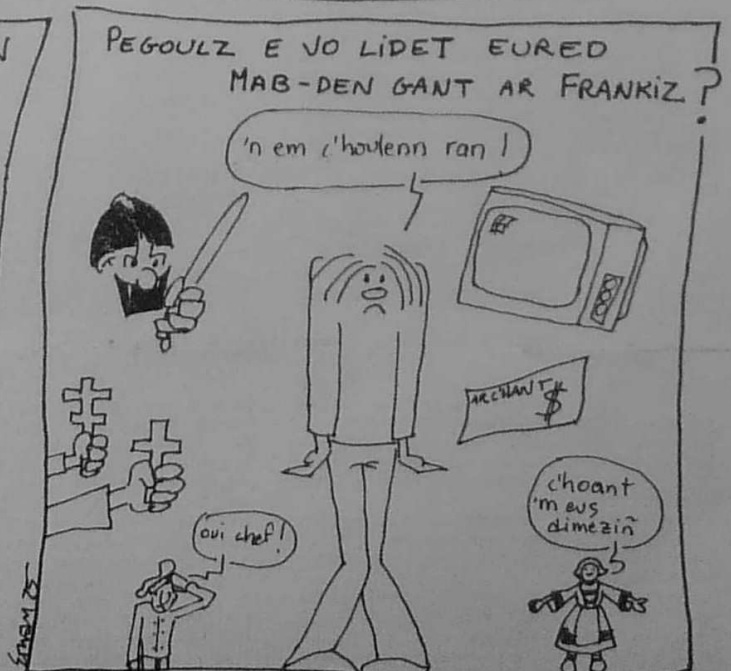 PEGOULZ E VO LIDET EURED
MAB-DEN GANT AR FRANKIZ ?
'n em c'houlenn ran !
ARC'HANT
$
oui chef !
c'hoant
'm eus
dimeziñ